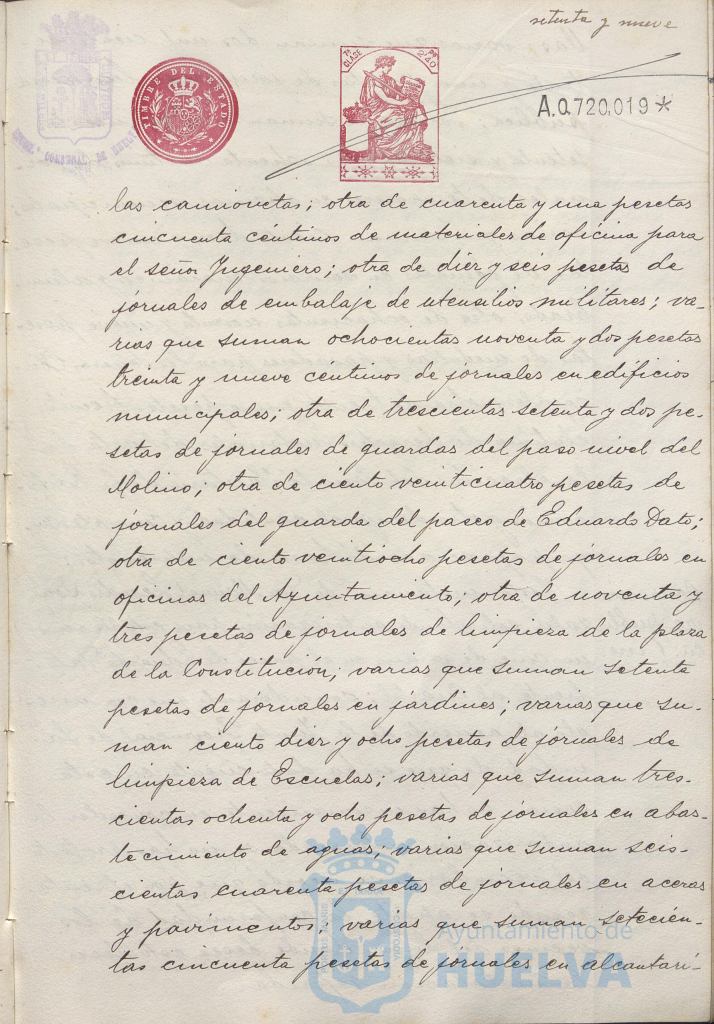 setenta y nueve
TIMBRE DEL ESTADO
7ª CLASE
2'40
A.0,720,019*
las camionetas; otra de cuarenta y una pesetas
cincuenta céntimos de materiales de oficina para
el señor Ingeniero; otra de diez y seis pesetas de
jornales de embalaje de utensilios militares; va-
rias que suman ochocientas noventa y dos pesetas
treinta y nueve céntimos de jornales en edificios
municipales; otra de trescientas setenta y dos pe-
setas de jornales de guardas del paso nivel del
Molino; otra de ciento veinticuatro pesetas de
jornales del guarda del paseo de Eduardo Dato;
otra de ciento veintiocho pesetas de jornales en
oficinas del Ayuntamiento; otra de noventa y
tres pesetas de jornales de limpieza de la plaza
de la Constitución; varias que suman setenta
pesetas de jornales en jardines; varias que su-
man ciento diez y ocho pesetas de jornales de
limpieza de Escuelas; varias que suman tres-
cientas ochenta y ocho pesetas de jornales en abas-
tecimiento de aguas; varias que suman seis-
cientas cuarenta pesetas de jornales en aceras
y pavimentos; varias que suman setecien-
tas cincuenta pesetas de jornales en alcantari-
Ayuntamiento de
HUELVA